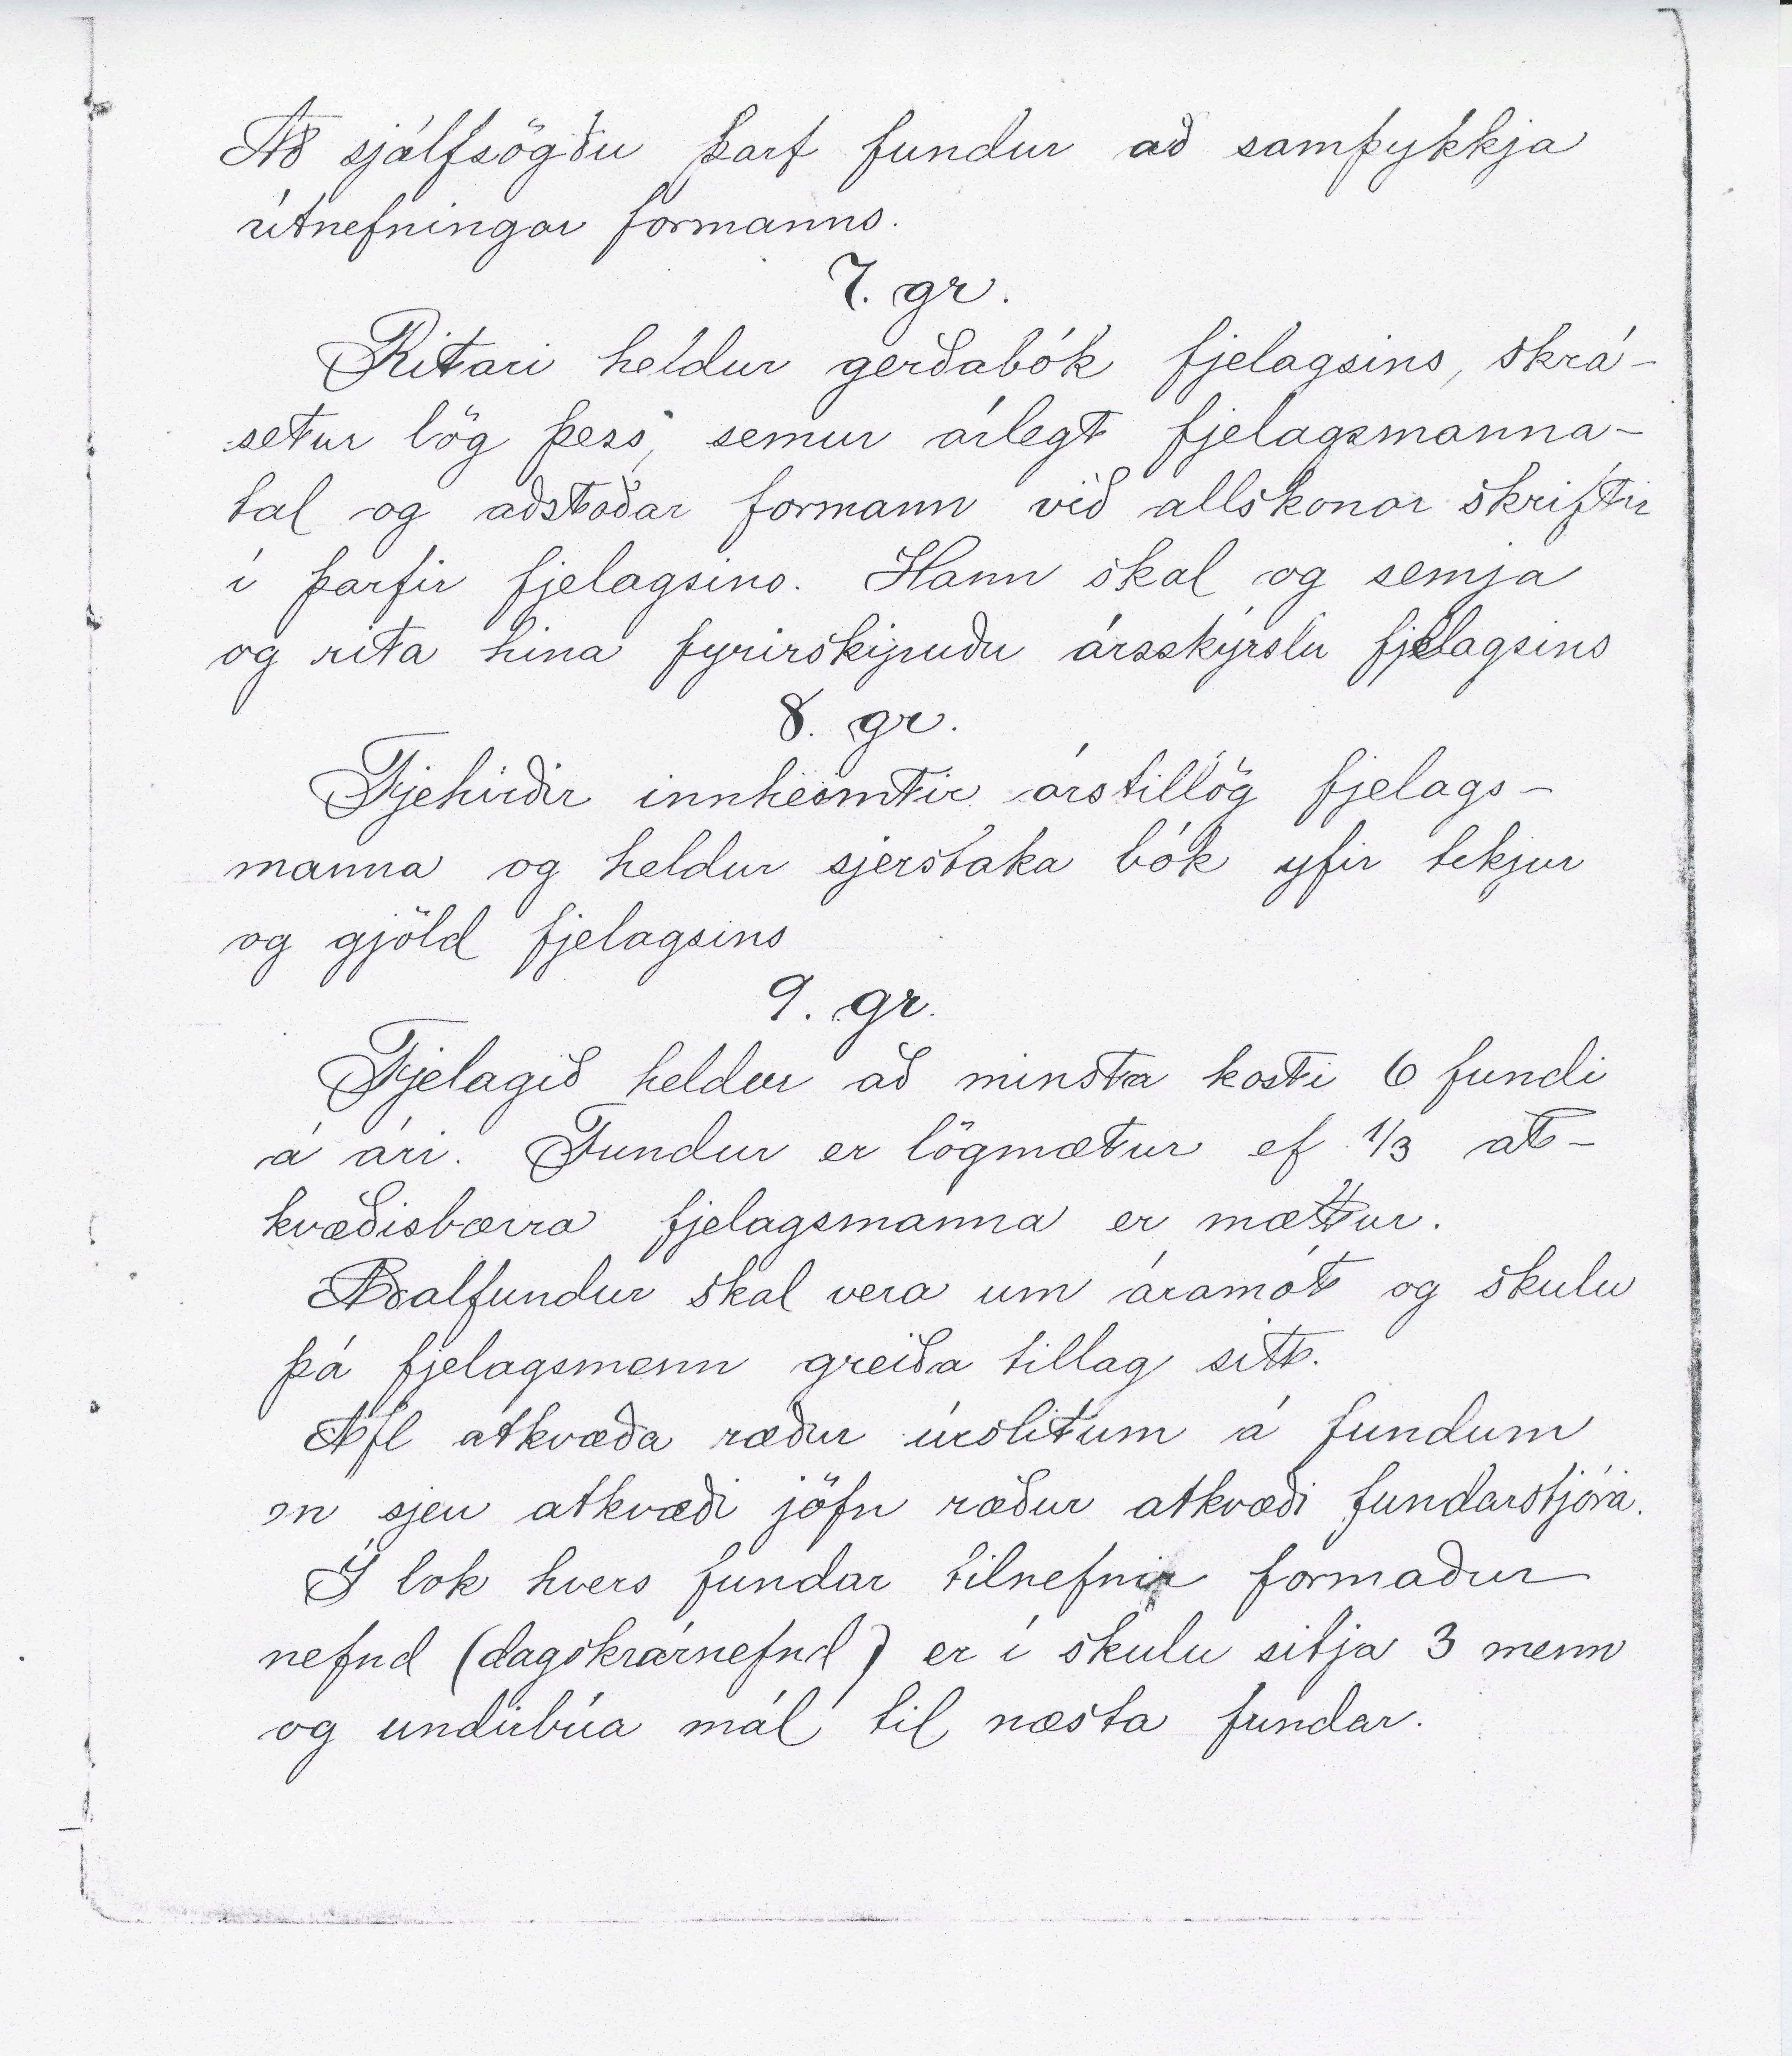 Að sjálfsögðu þarf fundur að samþykkja
útnefningar formanns.
7. gr.
Ritari heldur gerðabók fjelagsins, skrá-
setur lög þess, semur árlegt fjelagsmanna-
tal og aðstoðar formann við allskonar skriftir
í þarfir fjelagsins. Hann skal og semja
og rita hina fyrirskipuðu ársskýrslu fjelagsins
8. gr.
Fjehirðir innheimtir árstillög fjelags-
manna og heldur sjerstaka bók yfir tekjur
og gjöld fjelagsins
9. gr.
Fjelagið heldur að minsta kosti 6 fundi
á ári. Fundur er lögmætur ef 1/3 at-
kvæðisbærra fjelagsmanna er mættur.
Aðalfundur skal vera um áramót og skulu
þá fjelagsmenn greiða tillag sitt.
Afl atkvæða ræður úrslitum á fundum
en sjeu atkvæði jöfn ræður atkvæði fundarstjóra.
Í lok hvers fundar tilnefnir formaður
nefnd (dagskrárnefnd) er í skulu sitja 3 menn
og undirbúa mál til næsta fundar.